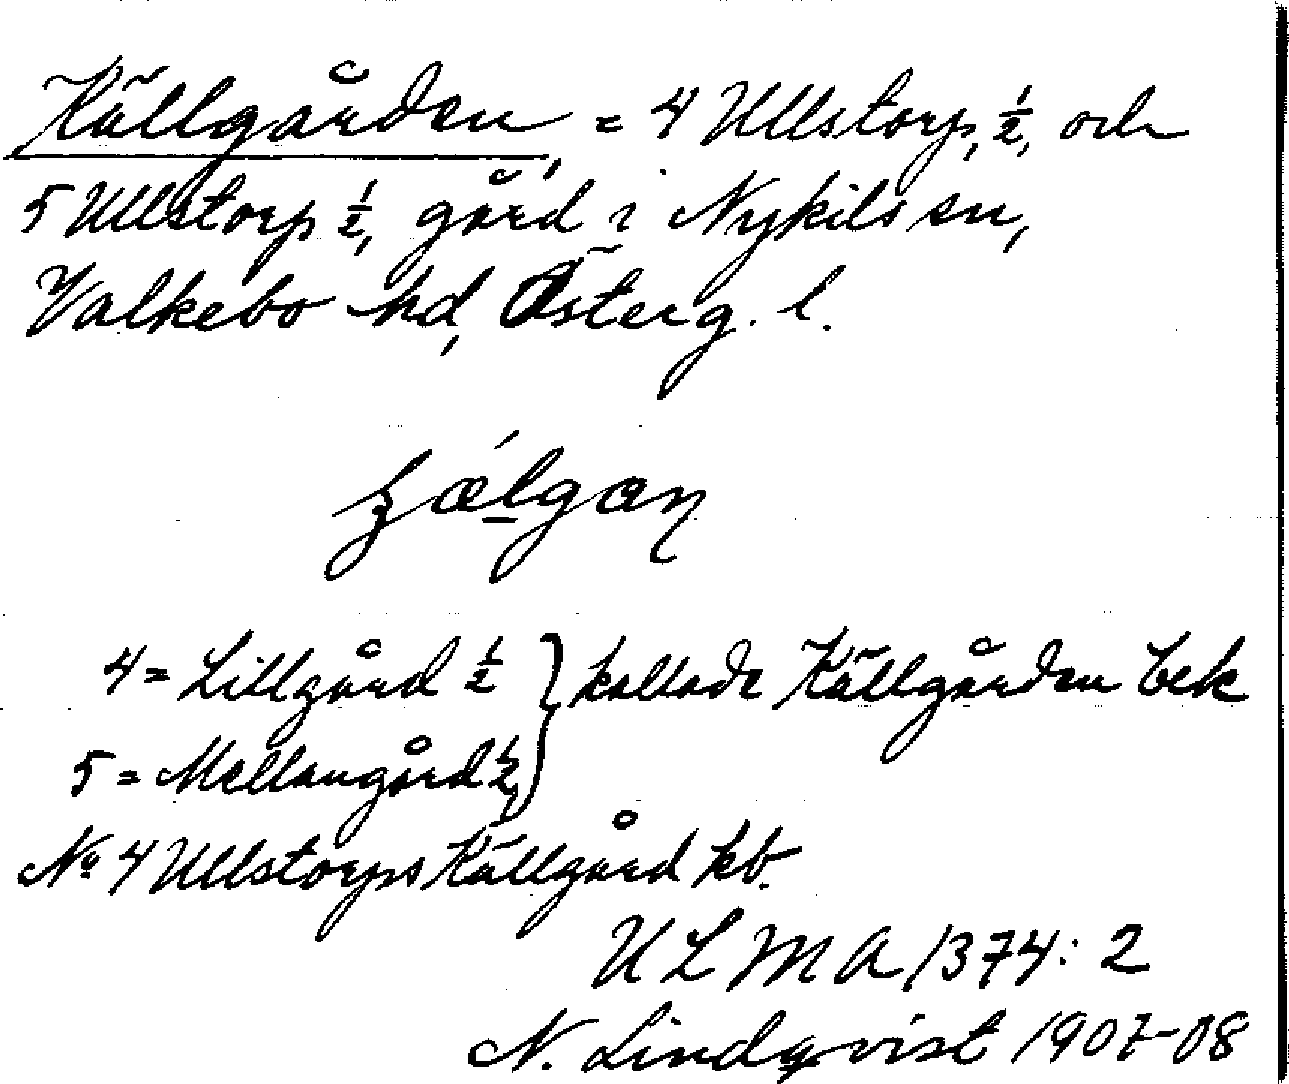 Källgården, = 4 Ullstorp, ½, och
5 Ullstorp ½, gård i Nykils sn,
Valkebo hd, Österg. l.
4 = Lillgård ½ } kallade Källgården bek
5 = Mellangård ½ }
No 4 Ullstorps Källgård kb.
ULMA 1374: 2
N. Lindqvist 1907-08